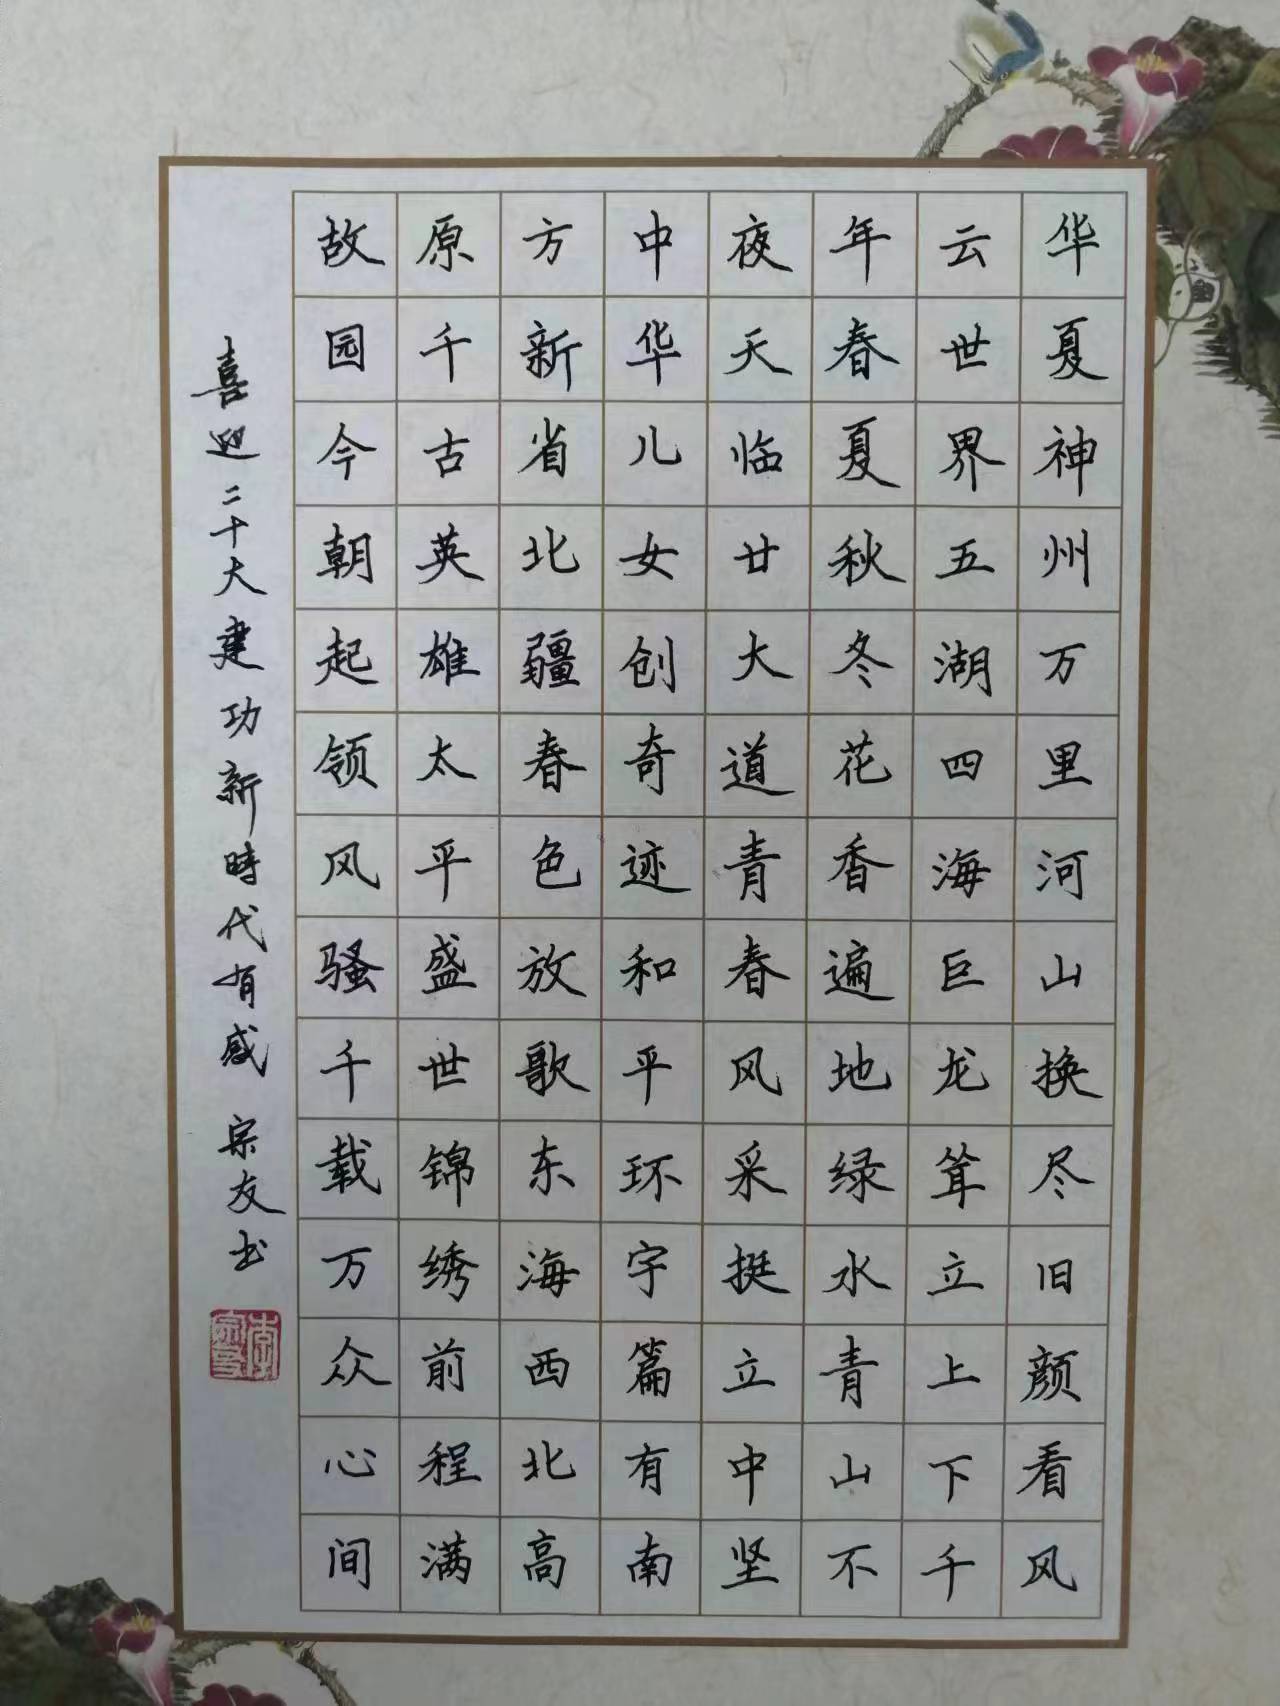 华夏神州万里河山换尽旧颜看风
云世界五湖四海巨龙耸立上下千
年春夏秋冬花香遍地绿水青山不
夜天临廿大道青春风采挺立中坚
中华儿女创奇迹和平环宇篇有南
方新省北疆春色放歌东海西北高
原千古英雄太平盛世锦绣前程满
故园今朝起领风骚千载万众心间
喜迎二十大建功新時代有感 宗友书